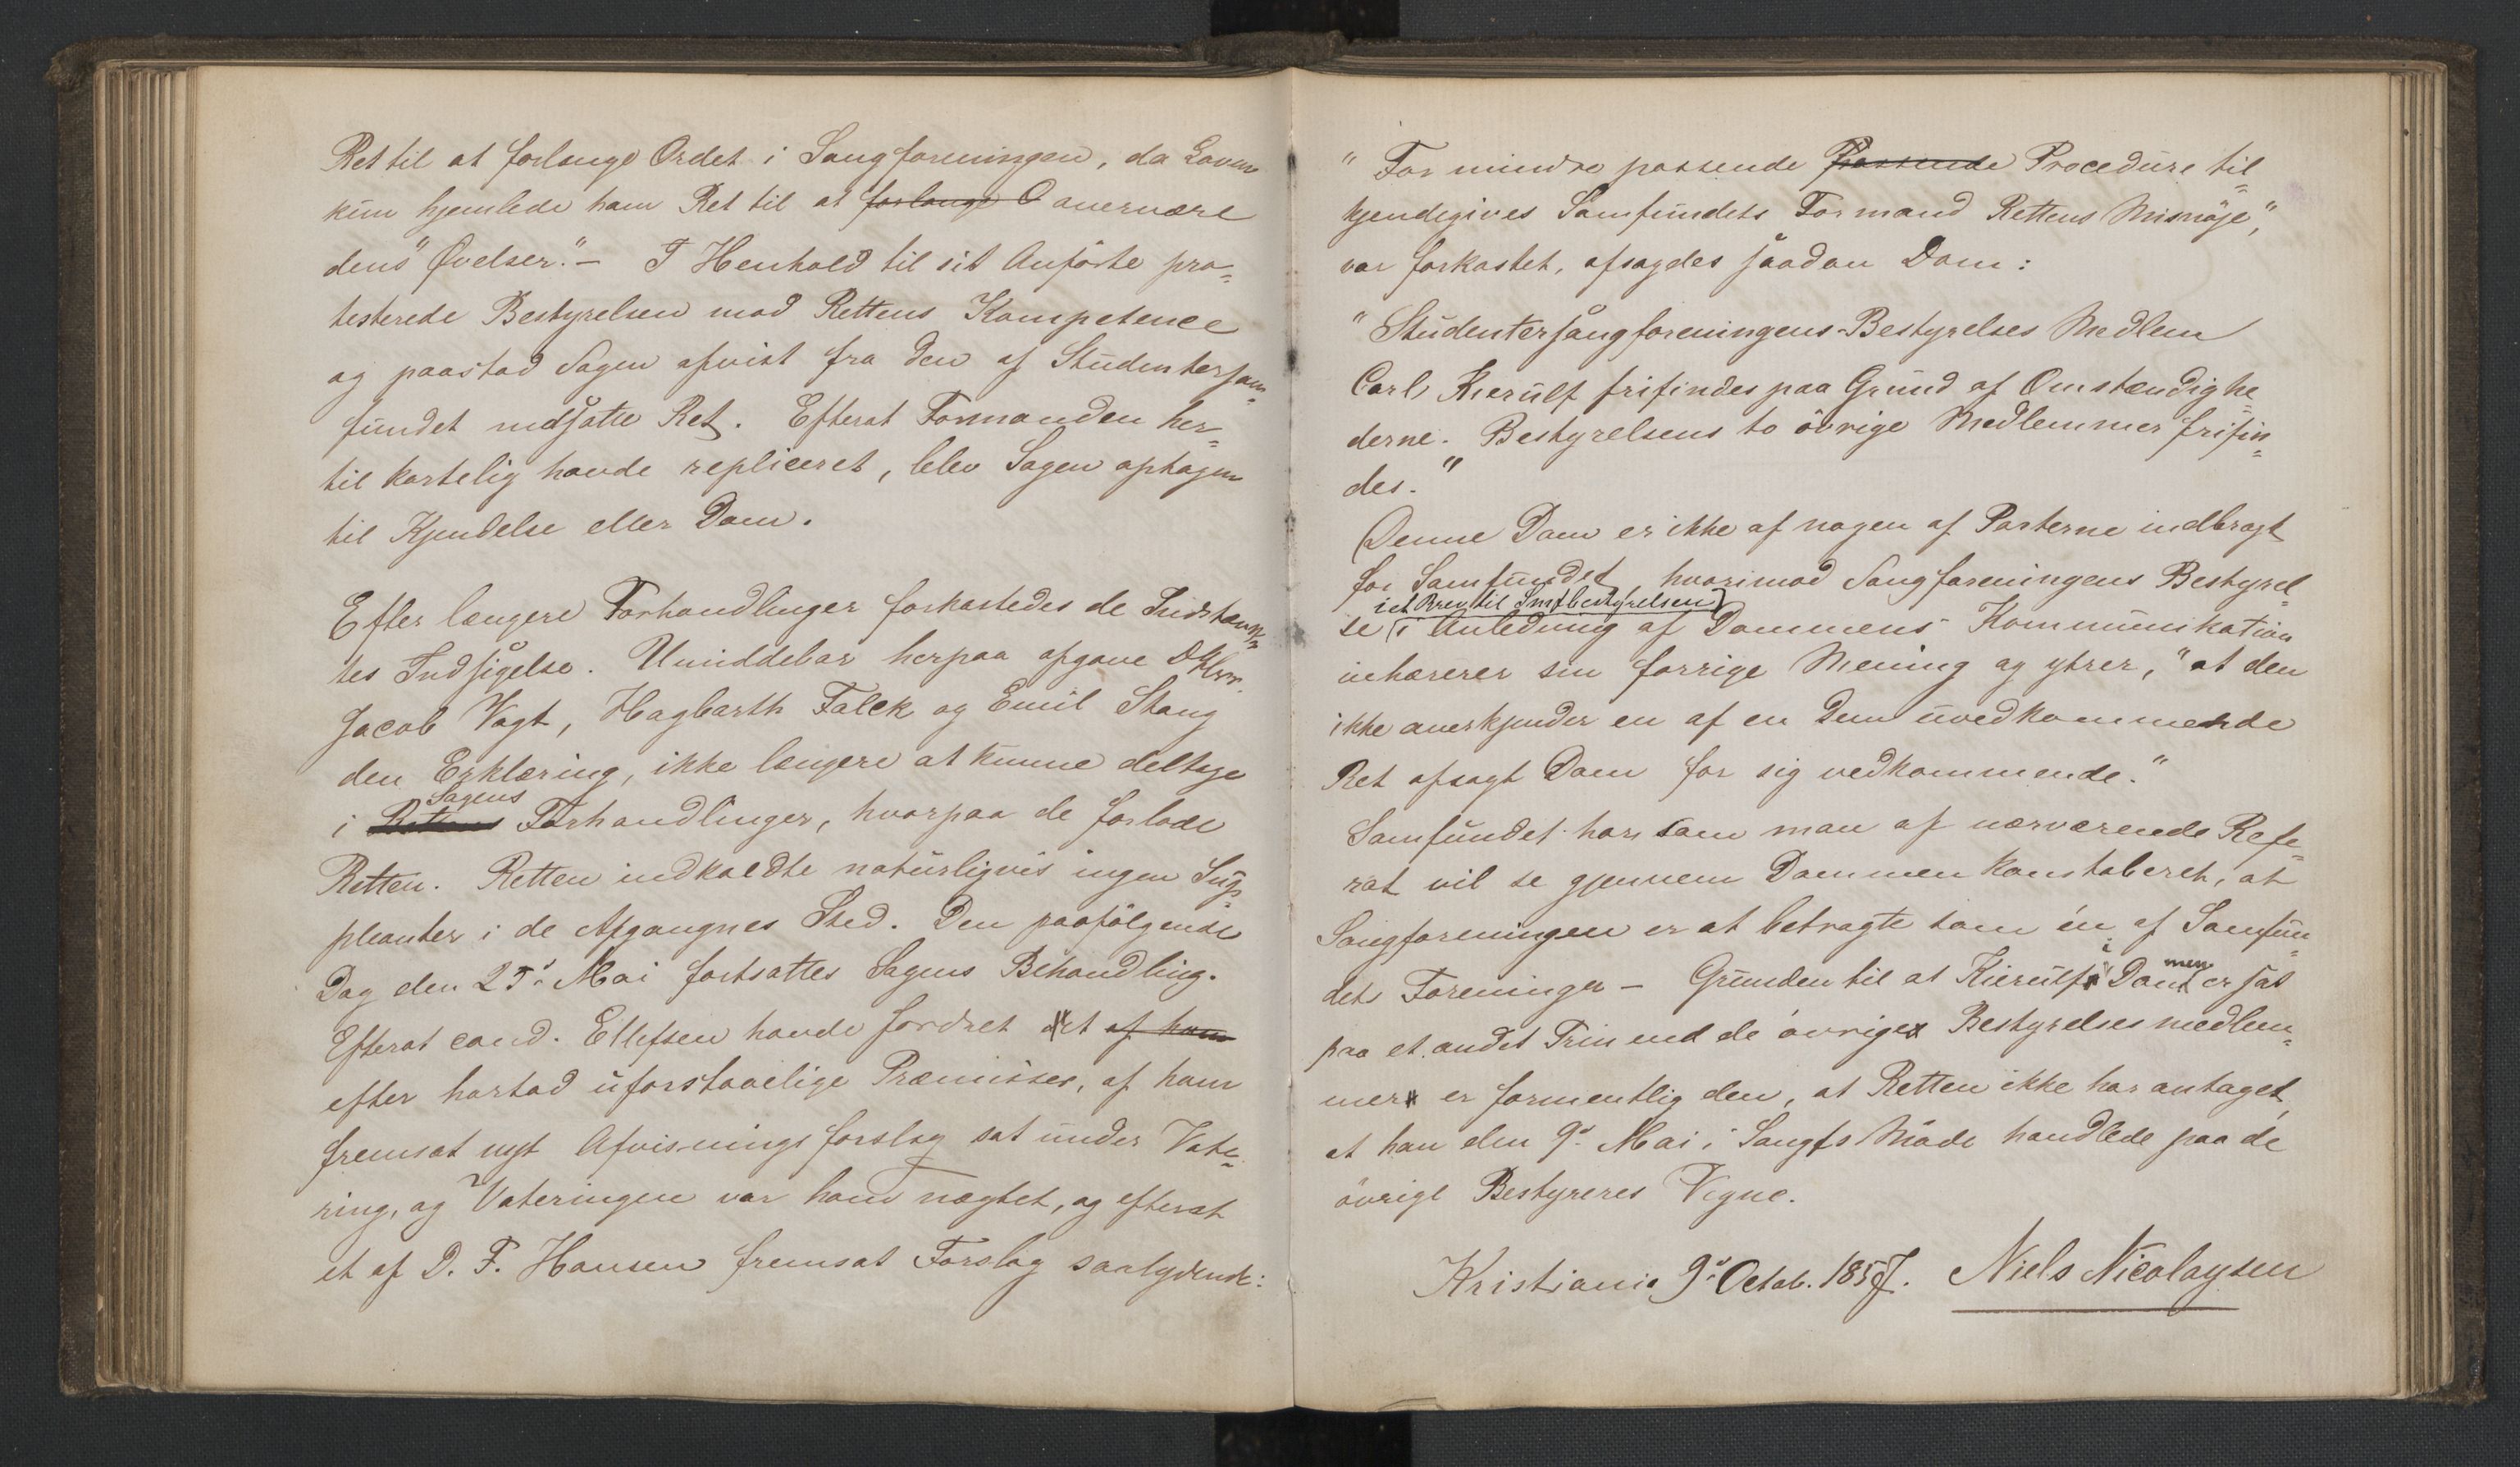 Ret til at forlange Ordet i Sangforeningen, da Loven
kun hjemlede ham Ret til at forlange O overvære
dens "Øvelser." – I Henhold til sit Anførte pro=
testerede Bestyrelsen mod Rettens Kompetence
og paastod Sagen afvist fra den af Studentersam=
fundet nedsatte Ret. Efterat Formanden her=
til kortelig havde repliceret, blev Sagen optagen
til Kjendelse eller Dom.
Efter længere Forhandlinger forkastedes de Indstævn=
tes Indsigelse. Umiddelbar herpaa afgave DHrr.
Jacob Vogt, Hagbarth Falck og Emil Stang
den Erklæring, ikke længere at kunne deltage
Sagens
i Rettens Forhandlinger, hvorpaa de forlode
Retten. Retten indkaldte naturligvis ingen Sup=
pleanter i de Afgangnes Sted. Den paafølgende
Dag den 25de Mai fortsattes Sagens Behandling.
Efterat cand. Ellefsen havde fordret et af ham
efter hartad uforstaaelige Præmisser, af ham
fremsat nyt Afvisningsforslag sat under Vote=
ring, og Voteringen var ham nægtet, og efterat
et af D. F. Hansen fremsat Forslag saalydende:
" For mindre passende Passende Procedure til=
kjendegives Samfundets Formand Rettens Mismøje",
var forkastet, afsagdes saadan Dom:
" Studentersangforeningens Bestyrelses Medlem
Carl Kierulf frifindes paa Grund af Omstændighe=
derne. Bestyrelsens to øvrige Medlemmer frifin=
des."
Denne Dom er ikke af nogen af Parterne indbragt
for Samfundet, hvorimod Sangforeningens Bestyrel=
i et Brev til Smfbestyrelsen
se i Anledning af Dommens Kommunikation
inhærerer sin forrige Mening og ytrer, "at den
ikke anerkjender en af en Dem uvedkommende
Ret afsagt Dom for sig vedkommende."
Samfundet har som man af nærværende Refe=
rat vil se gjennem Dommen konstateret, at
Sangforeningen er at betragte som én af Samfun=
dets Foreninger – Grunden til at Kierulf i Dommen er sat
paa et andet Trin end de øvrige Bestyrelsesmedlem=
mer er formentlig den, at Retten ikke har antaget,
at han den 9de Mai i Sangfs Møde handlede paa de
øvrige Bestyreres Vegne.
Kristiania 9de Octob. 1857. Niels Nicolaysen